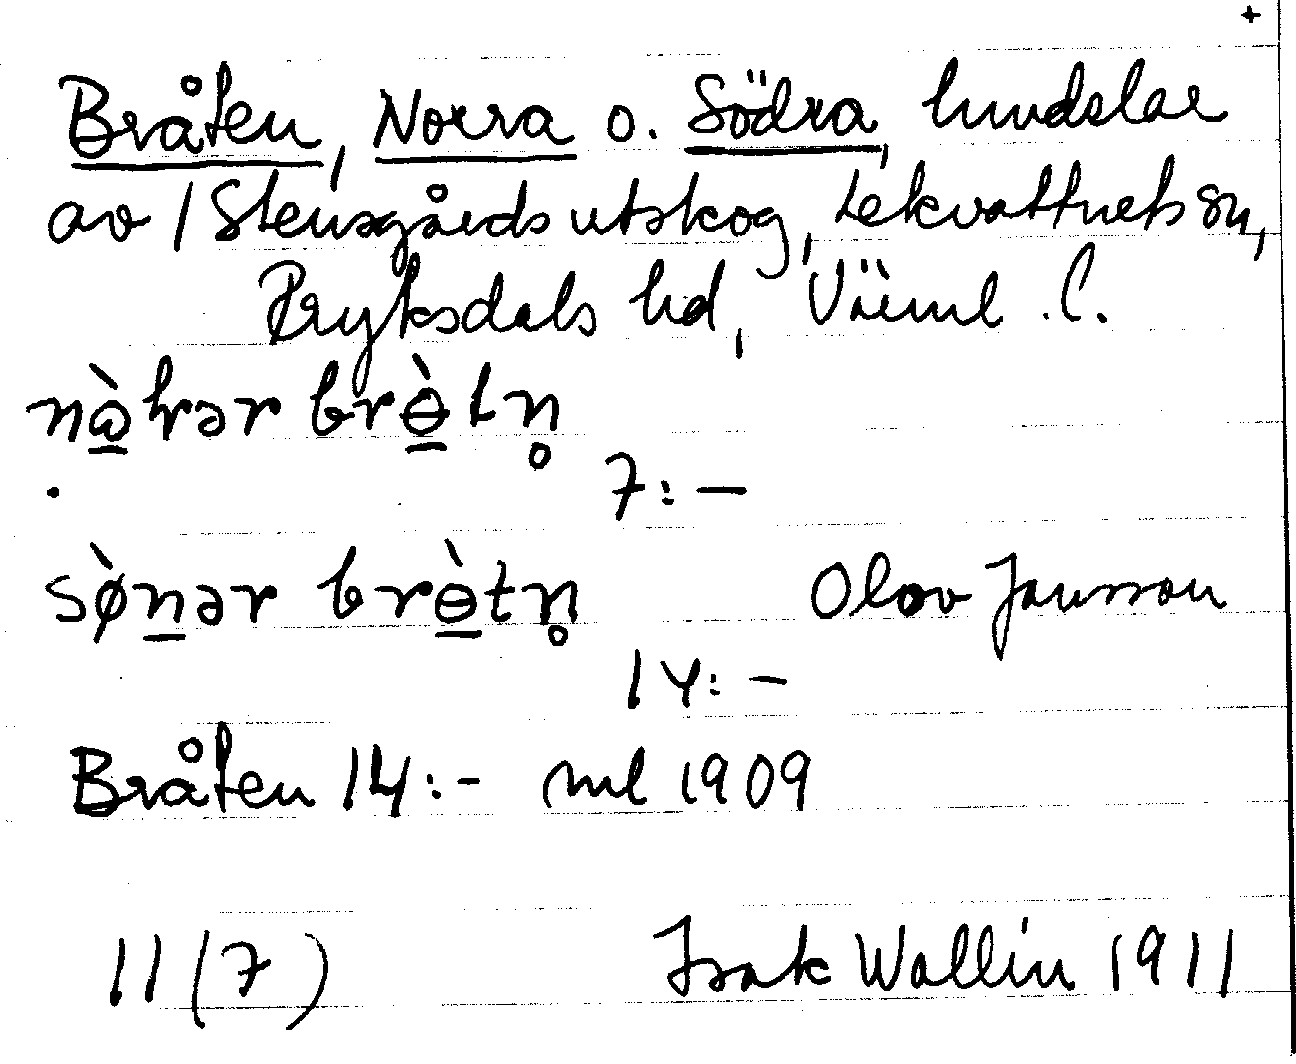 +
Bråten, Norra o. Södra, hmdslar
av 1 Stensgårds utskog, Lekvattnets sn,
Fryksdals hd, Värml. l.
nὼrər brɵ̀tn̥
7:-
sø̀nər brɵ̀tn̥ Olov Jansson
14:-
Bråten 14:- ml 1909
11(7) Isak Wallin 1911